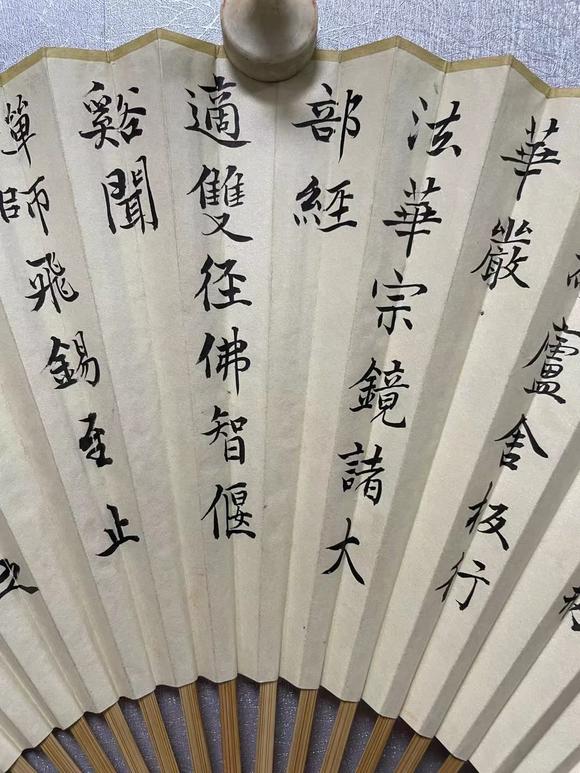 盧舍板行
華嚴
法華宗鏡諸大
部經
適雙径佛智偃
谿聞
禪師飛錫至止